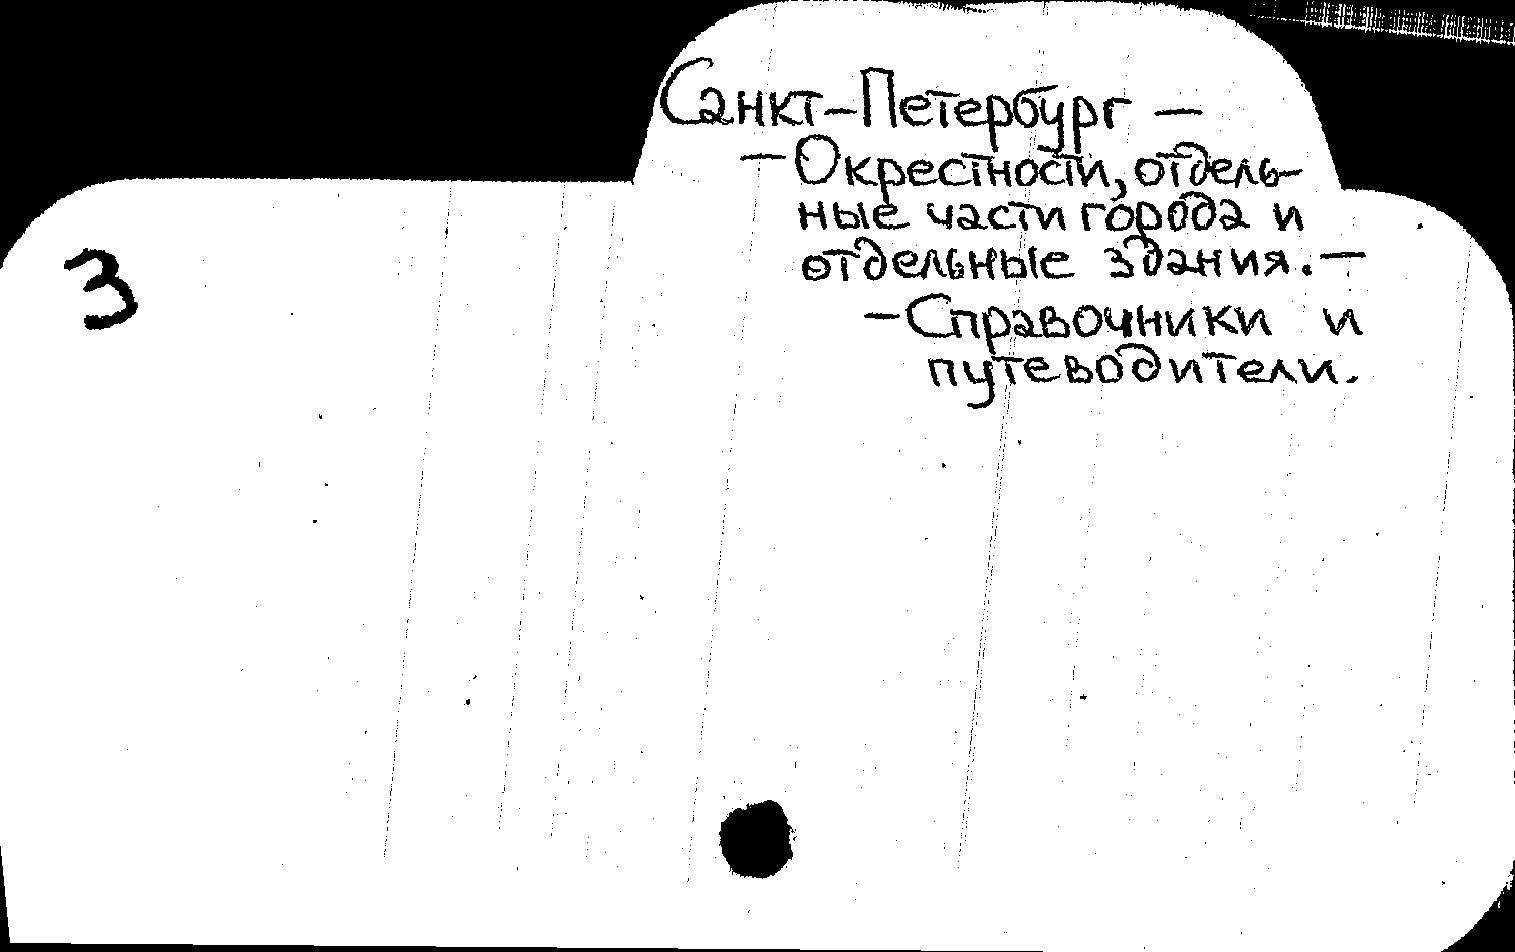 Санкт-Петербург —
— Окрестности, отдель-
ные части города и
отдельные здания. —
— Справочники и
путеводители.
3